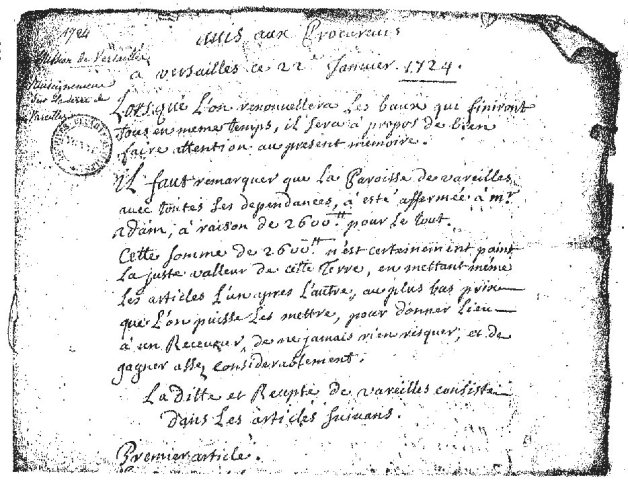 1724
de Versailles
sur la terre de
Vareilles
avis aux Procureurs
a versailles ce 22e Janvier 1724.
Lorsque L'on renouvellera Les baux qui finiront
tous en meme temps, il sera à propos de bien
faire attention au present memoire.
Il faut remarquer que La Paroisse de vareilles
avec toutes ses dependances, à esté affermée à mr
adam, à raison de 2600tt pour Le tout.
Cette somme de 2600tt n'est certainement point
La juste valleur de cette Terre, en mettant même
Les articles L'un apres L'autre, au plus bas prix
que L'on puisse Les mettre, pour donner Lieu
à un Receveur, de ne jamais rien risquer, et de
gagner assez considerablement.
La ditte et Recepte de vareilles consiste
dans Les articles suivans.
Premier article.